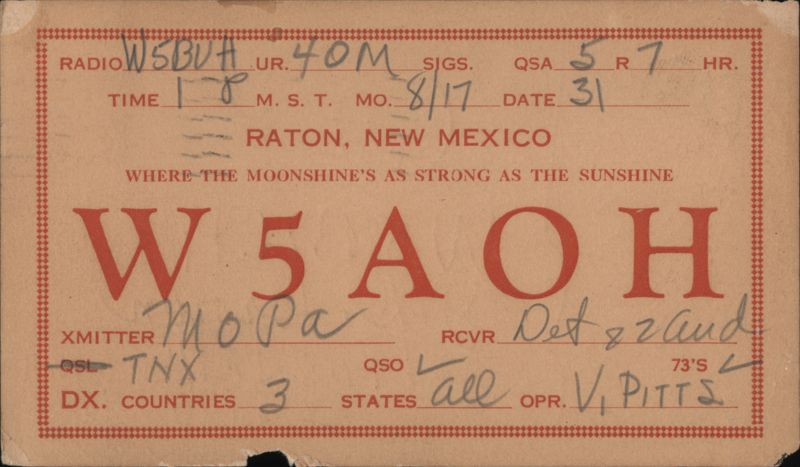 RADIO W5BUH UR. 40M SIGS. QSA 5 R 7 HR.
TIME 1-8 M. S. T. MO. 8/17 DATE 31
RATON, NEW MEXICO
WHERE THE MOONSHINE'S AS STRONG AS THE SUNSHINE
W5AOH
XMITTER MoPa RCVR Det & 2 Aud
QSL TNX QSO ✓ 73'S ✓
DX. COUNTRIES 3 STATES all OPR. V, PITTS